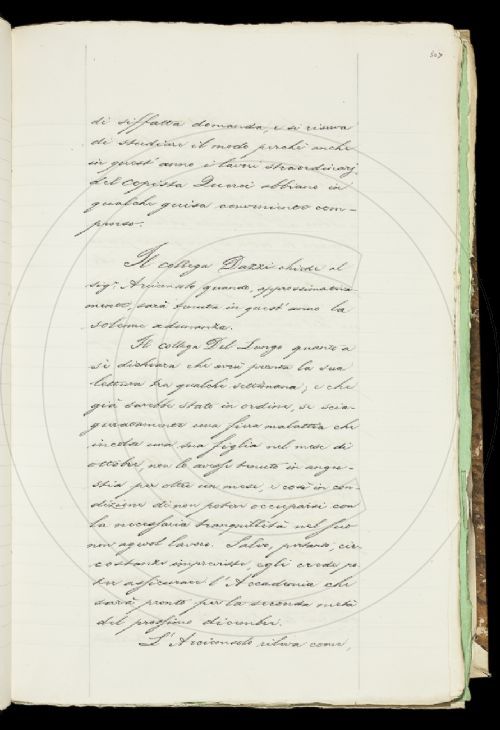 507
di siffatta domanda, e si riserva
di studiare il modo perchè anche
in quest'anno i lavori straordinarj
del copista Querci abbiano in
qualche guisa conveniente com-
penso.
Il collega Dazzi chiede al
sigr. Arciconsolo quando, approssimativa-
mente, sarà tenuta in quest'anno la
solenne adunanza.
Il collega Del Lungo quanto a
sè dichiara che avrà pronta la sua
lettura tra qualche settimana; e che
già sarebbe stata in ordine, se scia-
guratamente una fiera malattia che
incolse una sua figlia nel mese di
ottobre, non lo avesse tenuto in angu-
stia per oltre un mese, e così in con-
dizione di non poter occuparsi con
la necessaria tranquillità nel suo
non agevol lavoro. Salvo, pertanto, cir-
costanze impreviste, egli crede po-
ter assicurare l'Accademia che
sarà pronto per la seconda metà
del prossimo dicembre.
L'Arciconsolo rileva come,